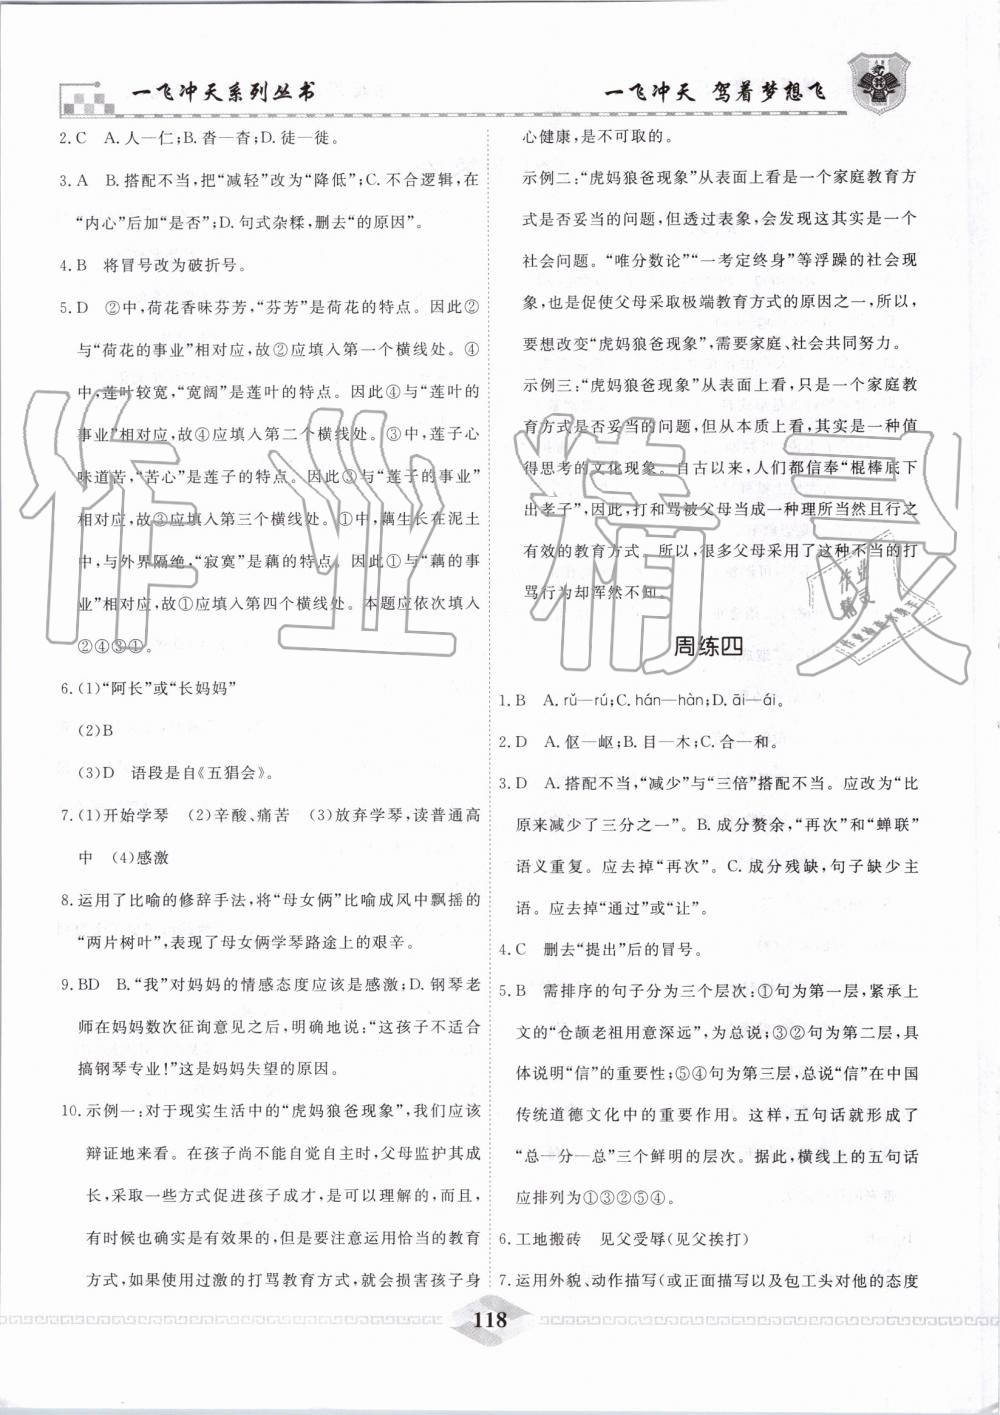 一飞冲天系列丛书
一飞冲天 驾着梦想飞
2. C A. 人—仁;B. 沓—杳;D. 徒—徙。
3. A B. 搭配不当,把“减轻”改为“降低”;C. 不合逻辑,在
“内心”后加“是否”;D. 句式杂糅,删去“的原因”。
4. B 将冒号改为破折号。
5. D ②中,荷花香味芬芳,“芬芳”是荷花的特点。因此②
与“荷花的事业”相对应,故②应填入第一个横线处。④
中,莲叶较宽,“宽阔”是莲叶的特点。因此④与“莲叶的
事业”相对应,故④应填入第二个横线处。③中,莲子心
味道苦,“苦心”是莲子的特点。因此③与“莲子的事业”
相对应,故③应填入第三个横线处。①中,藕生长在泥土
中,与外界隔绝,“寂寞”是藕的特点。因此①与“藕的事
业”相对应,故①应填入第四个横线处。本题应依次填入
②④③①。
6. (1)“阿长”或“长妈妈”
(2)B
(3)D 语段是自《五猖会》。
7. (1)开始学琴 (2)辛酸、痛苦 (3)放弃学琴,读普通高
中 (4)感激
8. 运用了比喻的修辞手法,将“母女俩”比喻成风中飘摇的
“两片树叶”,表现了母女俩学琴路途上的艰辛。
9. BD B. “我”对妈妈的情感态度应该是感激;D. 钢琴老
师在妈妈数次征询意见之后,明确地说:“这孩子不适合
搞钢琴专业!”这是妈妈失望的原因。
10. 示例一:对于现实生活中的“虎妈狼爸现象”,我们应该
辩证地来看。在孩子尚不能自觉自主时,父母监护其成
长,采取一些方式促进孩子成才,是可以理解的,而且,
有时候也确实是有效果的,但是要注意运用恰当的教育
方式,如果使用过激的打骂教育方式,就会损害孩子身
心健康,是不可取的。
示例二:“虎妈狼爸现象”从表面上看是一个家庭教育方
式是否妥当的问题,但透过表象,会发现这其实是一个
社会问题。“唯分数论”“一考定终身”等浮躁的社会现
象,也是促使父母采取极端教育方式的原因之一,所以,
要想改变“虎妈狼爸现象”,需要家庭、社会共同努力。
示例三:“虎妈狼爸现象”从表面上看,只是一个家庭教
育方式是否妥当的问题,但从本质上看,其实是一种值
得思考的文化现象。自古以来,人们都信奉“棍棒底下
出孝子”,因此,打和骂被父母当成一种理所当然且行之
有效的教育方式。所以,很多父母采用了这种不当的打
骂行为却浑然不知。
周练四
1. B A. rǔ—rú;C. hán—hàn;D. āi—ái。
2. D A. 伛—岖;B. 目—木;C. 合—和。
3. D A. 搭配不当,“减少”与“三倍”搭配不当。应改为“比
原来减少了三分之一”。B. 成分赘余,“再次”和“蝉联”
语义重复。应去掉“再次”。C. 成分残缺,句子缺少主
语。应去掉“通过”或“让”。
4. C 删去“提出”后的冒号。
5. B 需排序的句子分为三个层次:①句为第一层,紧承上
文的“仓颉老祖用意深远”,为总说;③②句为第二层,具
体说明“信”的重要性;⑤④句为第三层,总说“信”在中国
传统道德文化中的重要作用。这样,五句话就形成了
“总—分—总”三个鲜明的层次。据此,横线上的五句话
应排列为①③②⑤④。
6. 工地搬砖 见父受辱(见父挨打)
7. 运用外貌、动作描写(或正面描写以及包工头对他的态度
118
作业精灵
作业
精灵